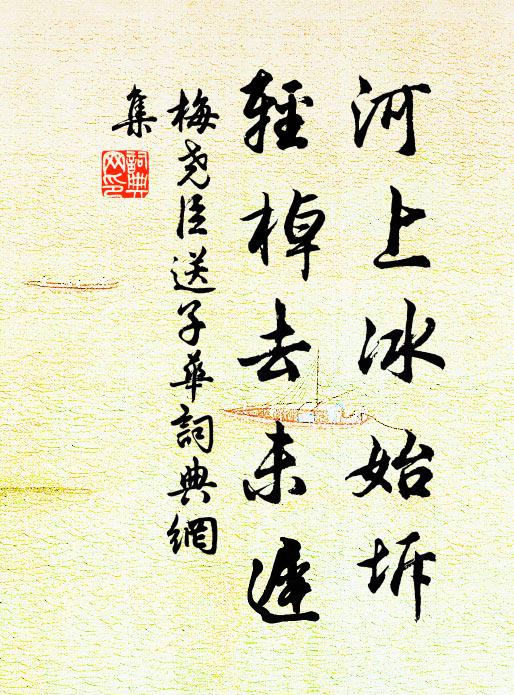 河上冰始坼
輕棹去未遲
梅堯臣送子華詞典網
集
詞典
网印